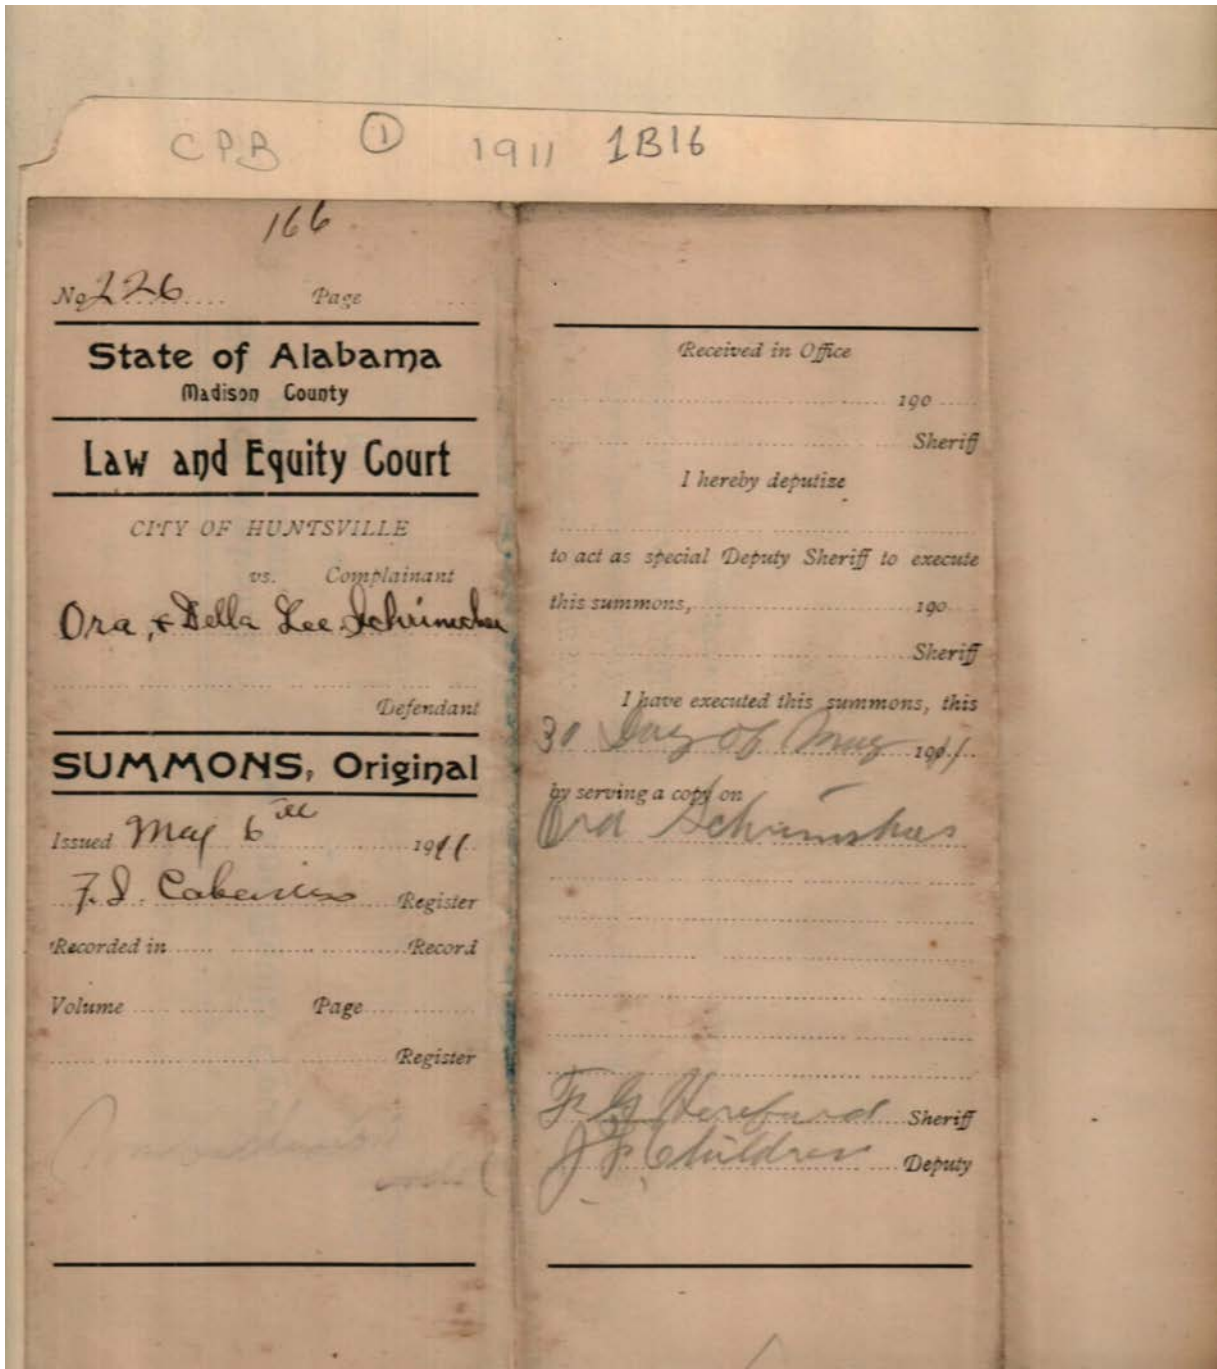 CPB ① 1911 1B16
166
No 226 Page
State of Alabama
Madison County
Law and Equity Court
CITY OF HUNTSVILLE
vs. Complainant
Ora, & Della Lee Schrimsher
Defendant
SUMMONS, Original
Issued May 6th 1911
F. I. Cabaniss Register
Recorded in Record
Volume Page
Register
Received in Office
190
Sheriff
I hereby deputize
to act as special Deputy Sheriff to execute
this summons, 190
Sheriff
I have executed this summons, this
30 Day of May 1911
by serving a copy on
Ora Schrimsher
F. G. Hereford Sheriff
J. F. Childress Deputy